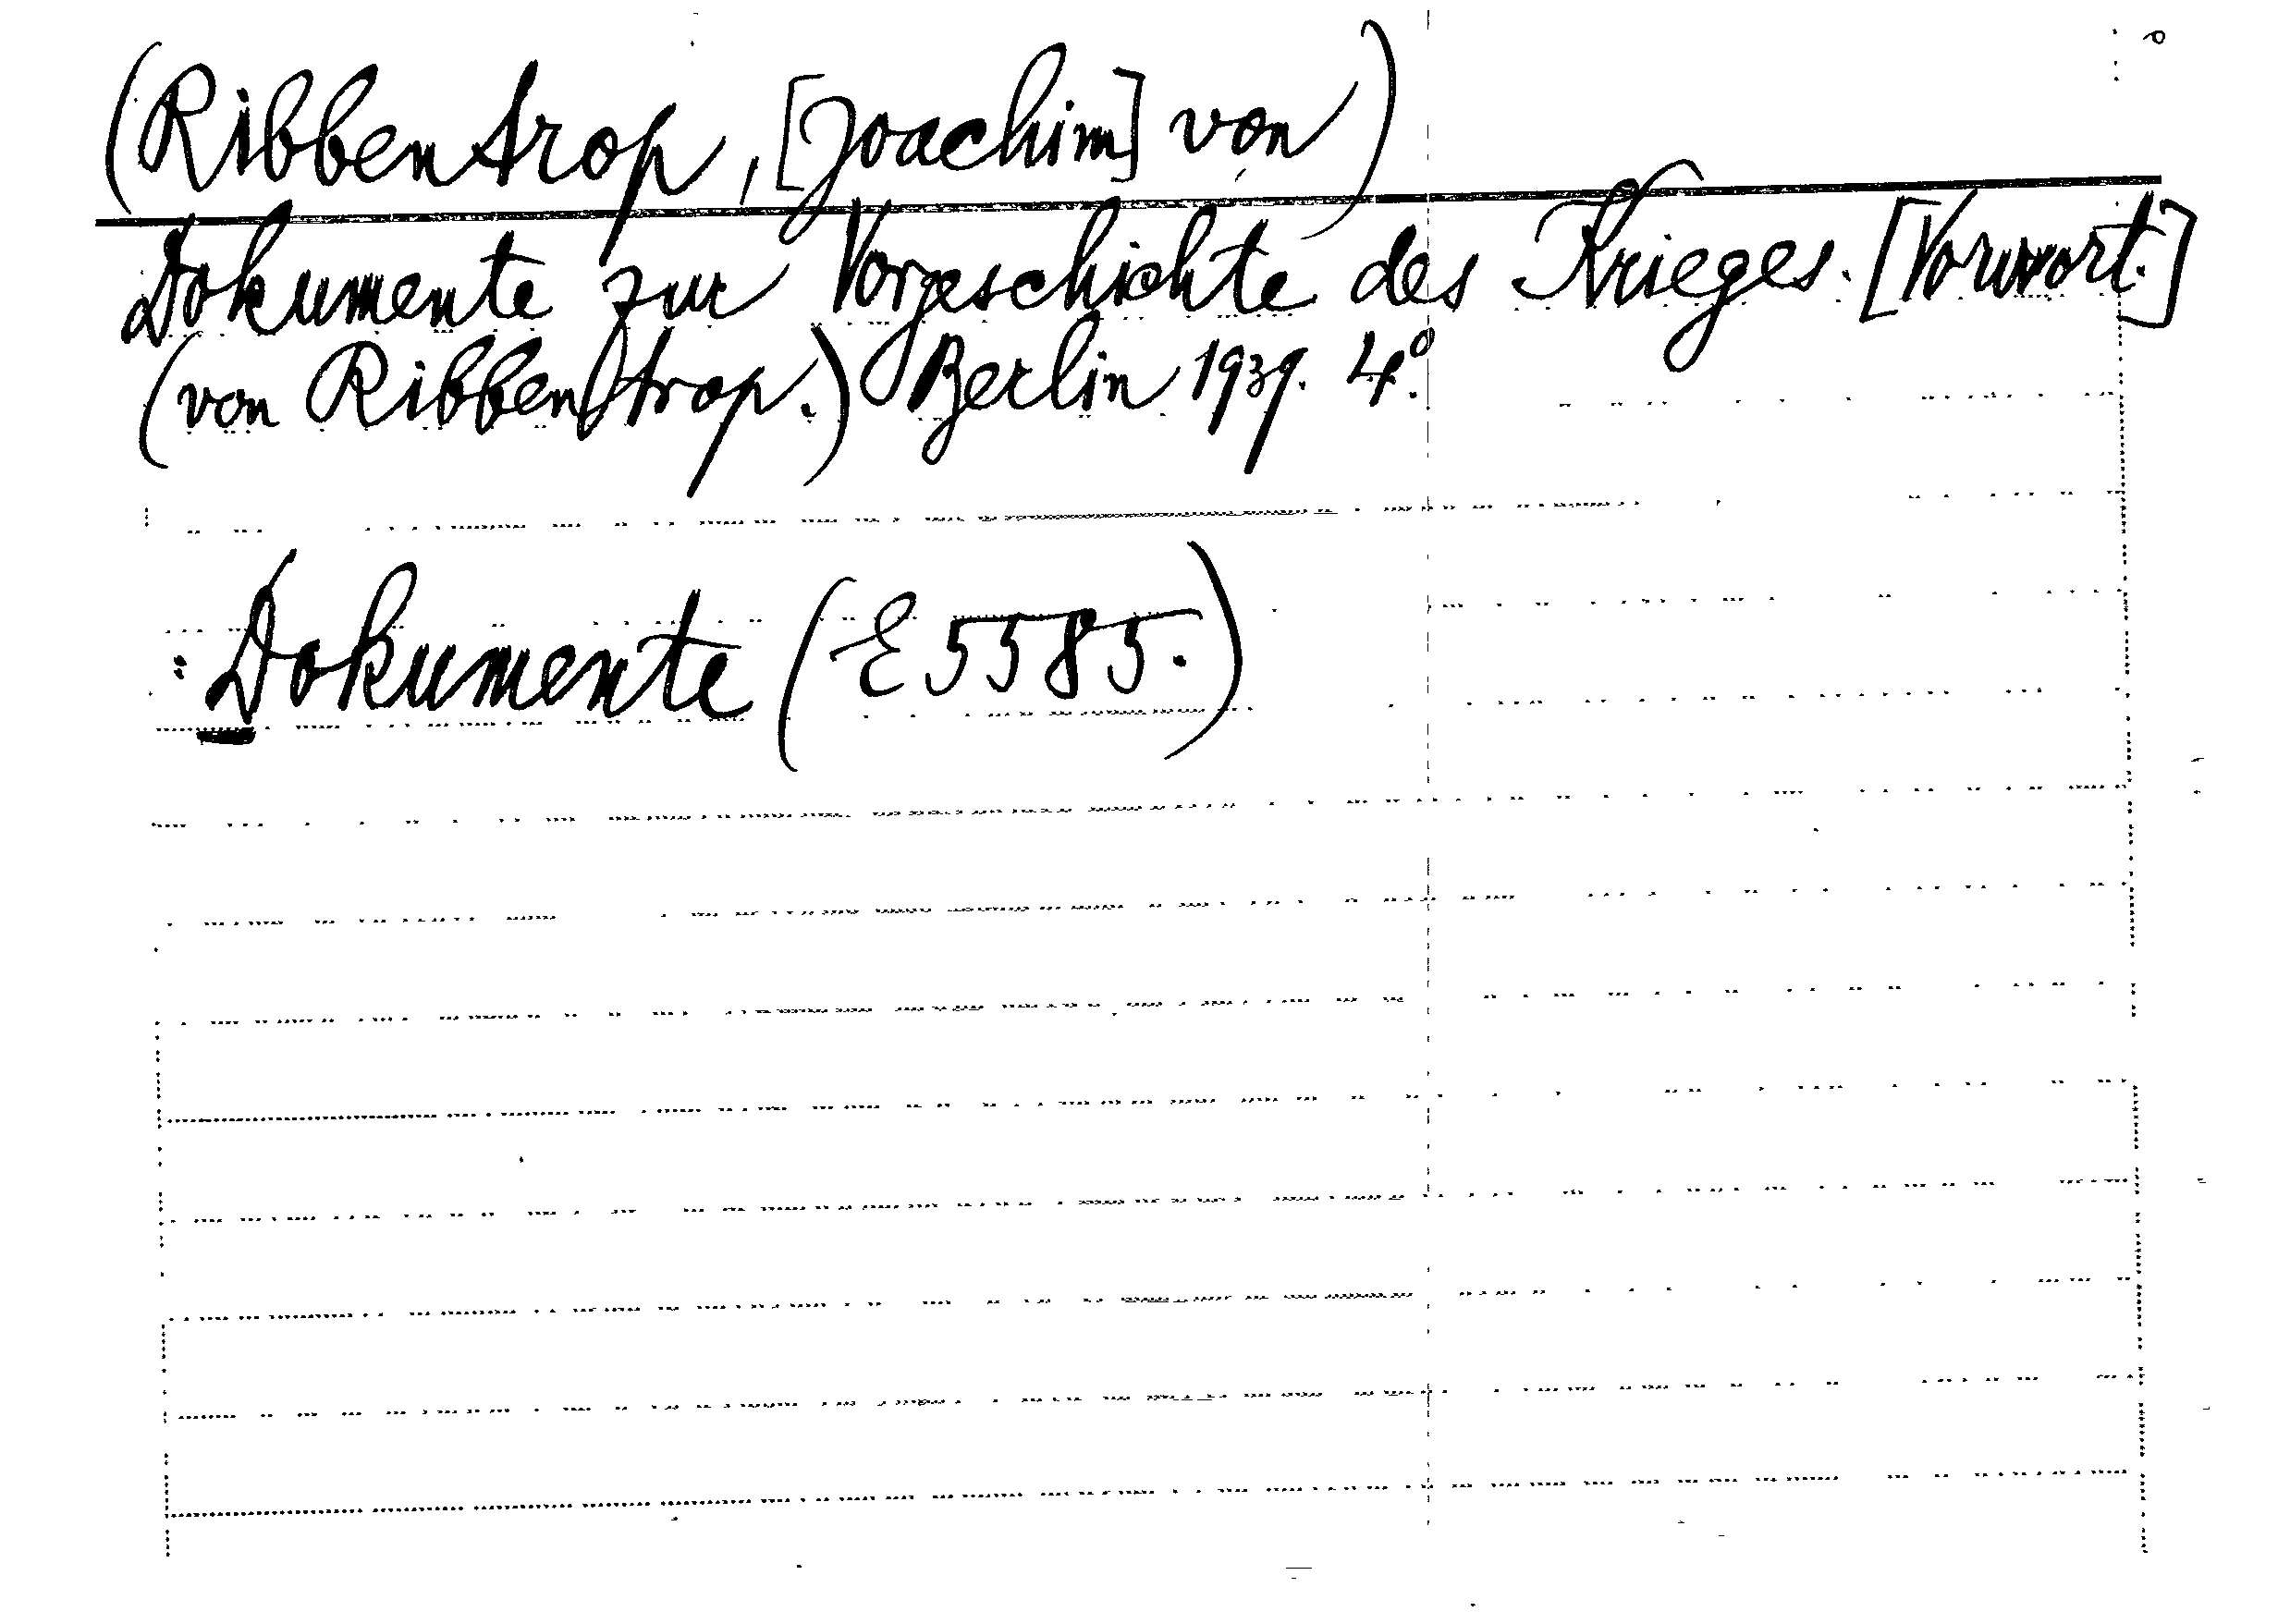 (Ribbentrop, [Joachim] von)
Dokumente zur Vorgeschichte des Krieges. [Vorwort.]
(von Ribbentrop.) Berlin 1939. 4°.
: Dokumente (E 5585.)